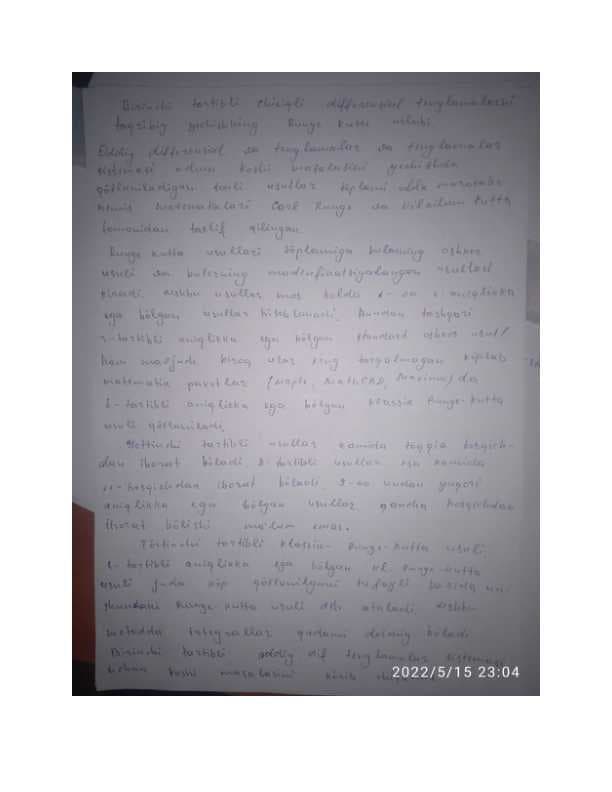 Birinchi tartibli chiziqli differensial tenglamalarni
taqribiy yechishning Runge Kutta uslubi
Oddiy differensial va tenglamalar va tenglamalar
sistemasi uchun Koshi masalasini yechishda
qo'llaniladigan turli usullar to'plami
nemis matematiklari Carl Runge va Vilgelm Kutta
tomonidan taklif qilingan
Runge Kutta usullari to'plamiga Eulerning oshkor
usuli va Eulerning usullari
kiradi. ushbu usullar mos holda 1- va 2 aniqlikka
ega bo'lgan usullar hisoblanadi. Bundan tashqari
3-tartibli aniqlikka ega bo'lgan standard oshkor usul
ham mavjud biroq ular keng tarqalmagan ko'plab
matematik paketlar (Maple, MathCAD, Maxima) da
4-tartibli aniqlikka ega bo'lgan klassik Runge-Kutta
usuli qo'llaniladi.
Yettinchi tartibli usullar kamida to'qqiz bosqich-
dan iborat bo'ladi 8-tartibli usullar esa kamida
11-bosqichdan iborat bo'ladi 9-va undan yuqori
aniqlikka ega bo'lgan usullar qancha bosqichdan
iborat bo'lishi ma'lum emas.
To'rtinchi tartibli klassik Runge-Kutta usuli
4-tartibli aniqlikka ega bo'lgan Runge-Kutta
usuli juda ko'p qo'llanilgani tufayli
Runge-Kutta usuli deb ataladi. ushbu
metodda integrallar qadami doimiy bo'ladi
Birinchi tartibli oddiy dif tenglamalar sistemasi
uchun Koshi masalasini ko'rib
2022/5/15 23:04